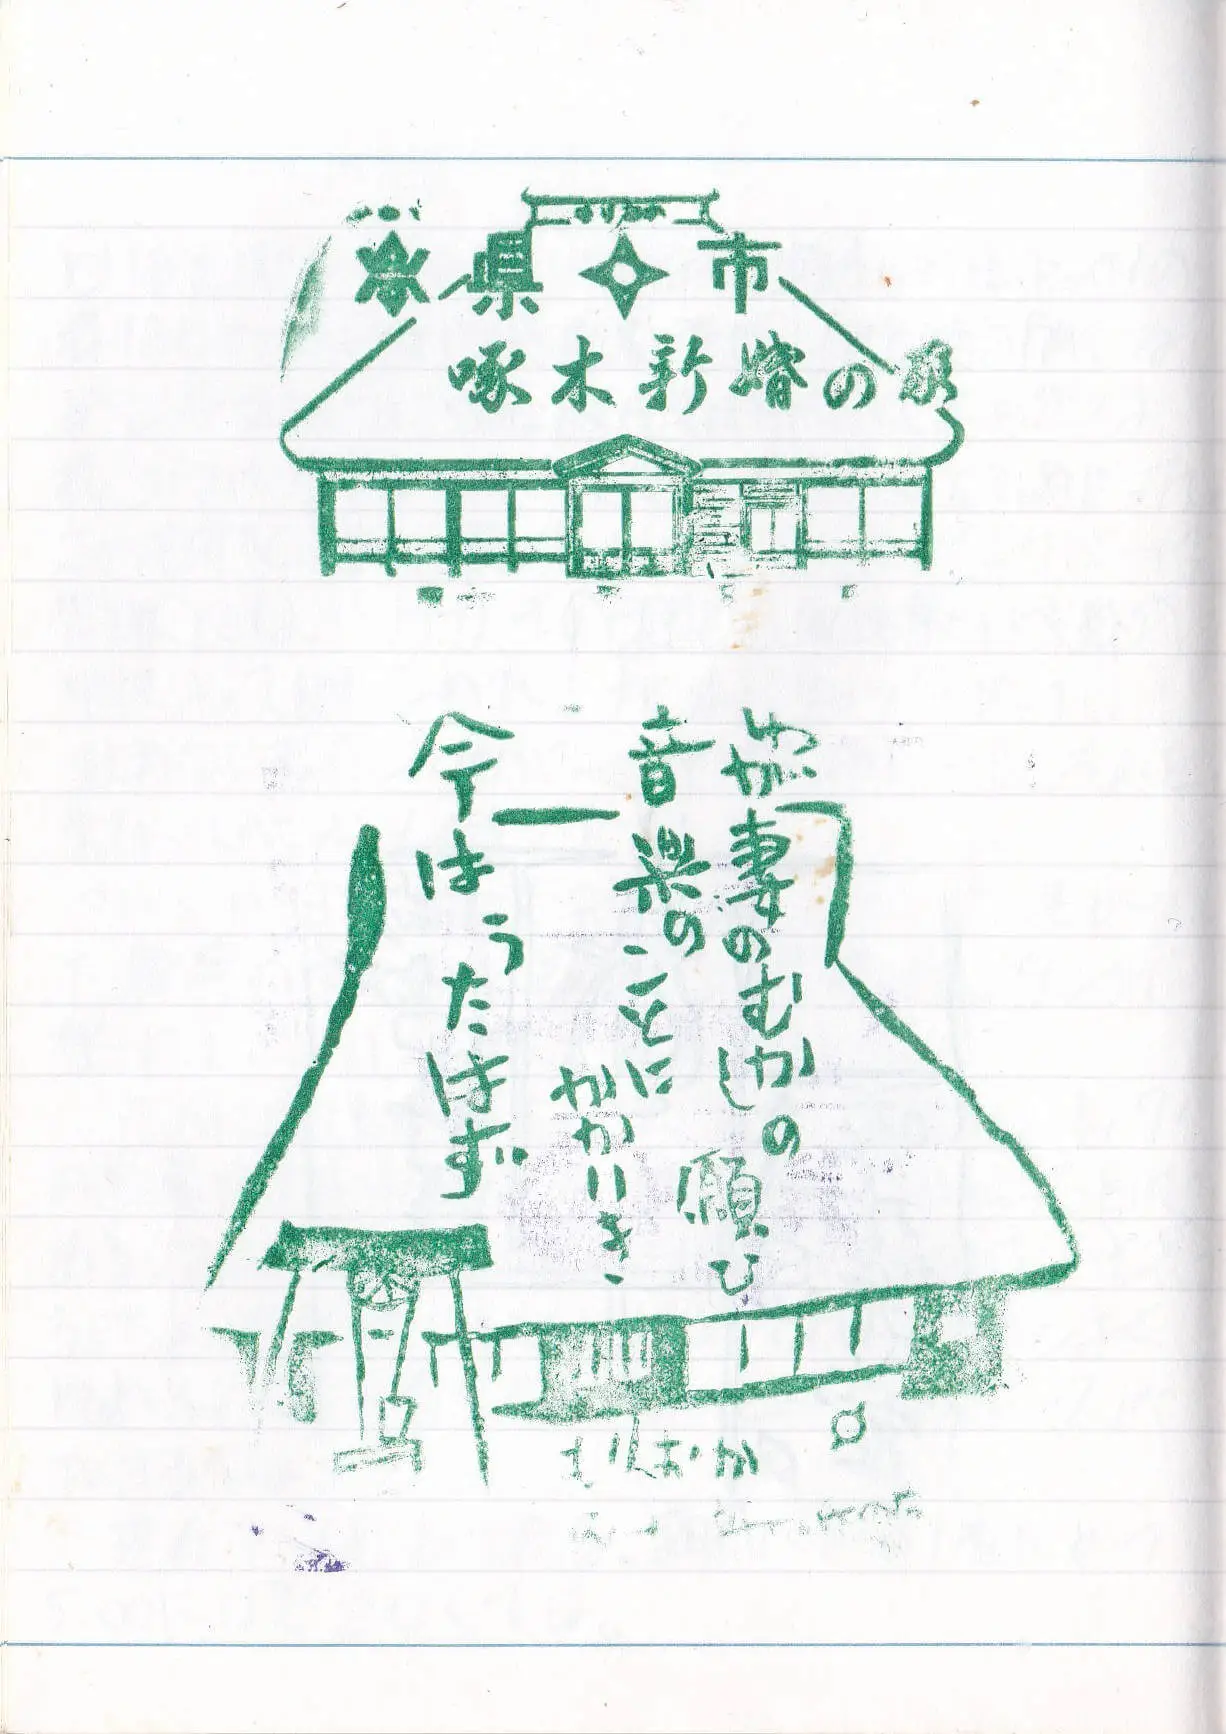 県 市
啄木新婚の家
わが妻のむかしの願ひ
音楽のことに
かかりき
今はうたはず
もりおか